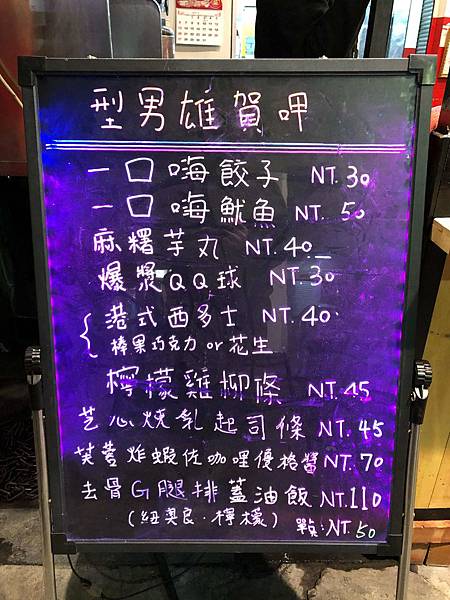 型男雄賀呷
一口嗨餃子 NT.30
一口嗨魷魚 NT.50
麻糬芋丸 NT.40
爆漿QQ球 NT.30
港式西多士 NT.40
榛果巧克力 or 花生
檸檬雞柳條 NT.45
芝心燒乳起司條 NT.45
芙蓉炸蝦佐咖哩優格醬 NT.70
去骨G腿排蓋油飯 NT.110
(紐奧良.檸檬) 單點:NT.50